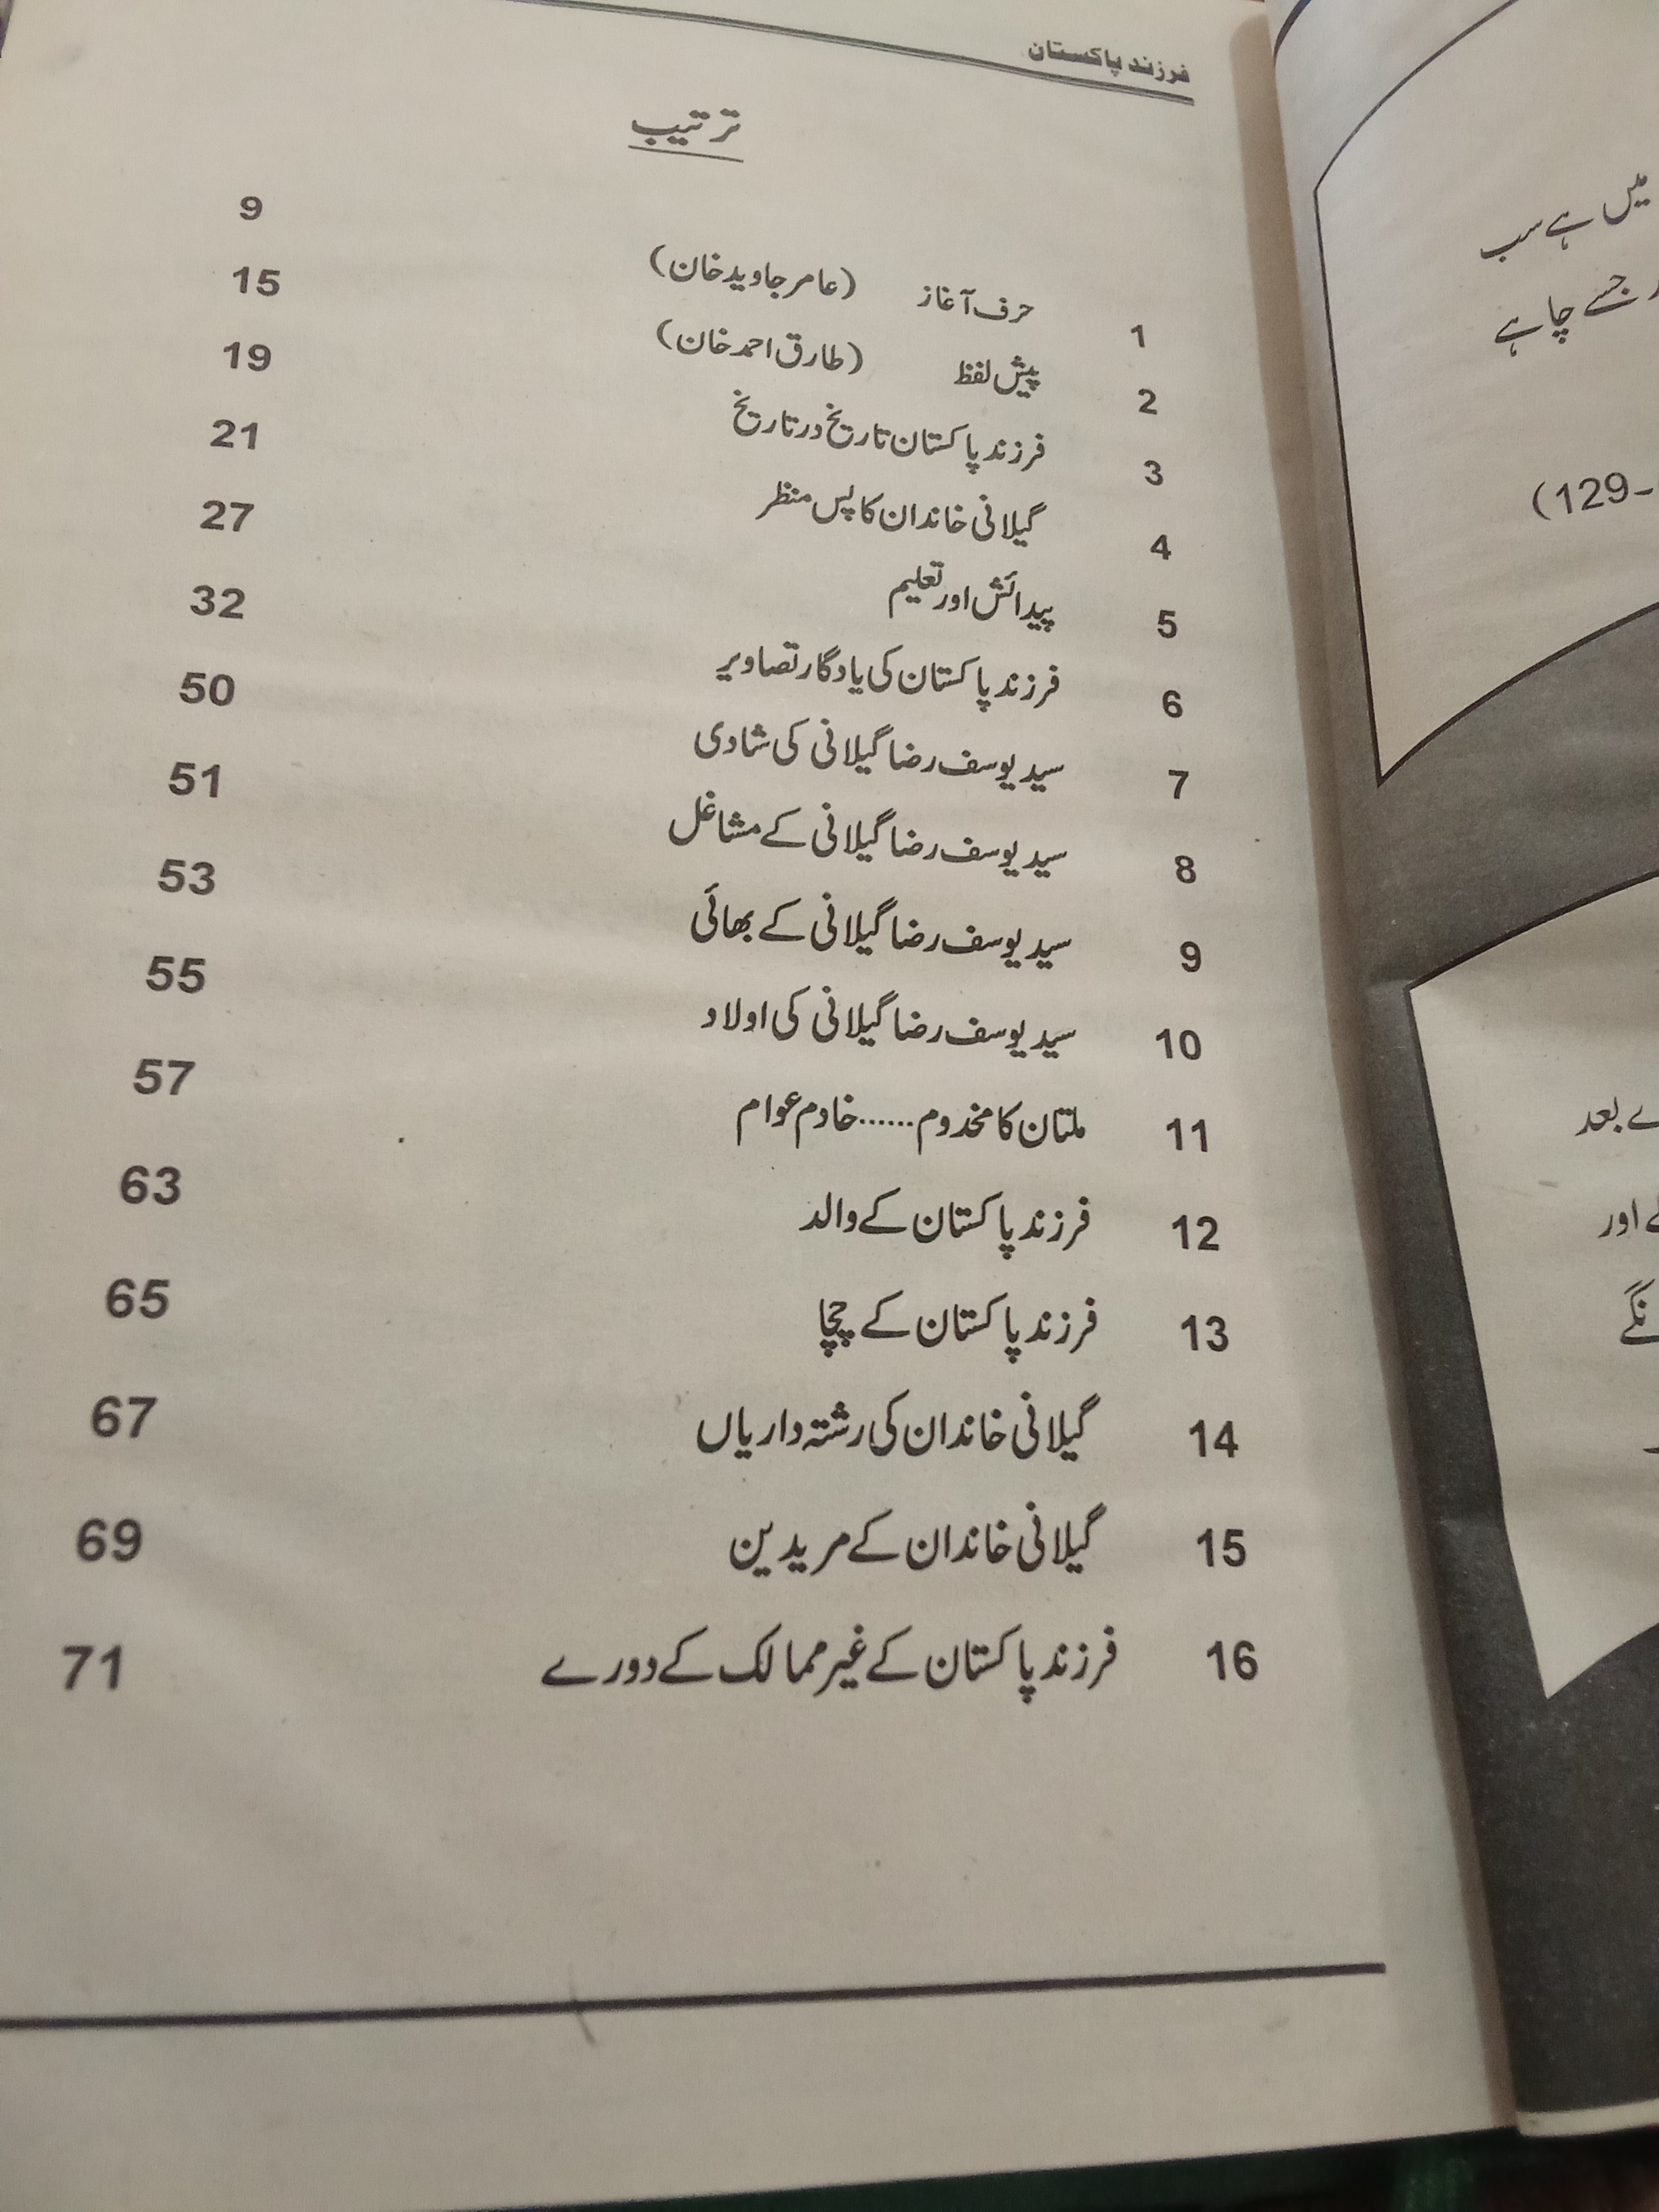 فرزند پاکستان
ترتیب
1 حرف آغاز (عامر جاوید خان) 9
2 پیش لفظ (طارق احمد خان) 15
3 فرزند پاکستان تاریخ در تاریخ 19
4 گیلانی خاندان کا پس منظر 21
5 پیدائش اور تعلیم 27
6 فرزند پاکستان کی یادگار تصاویر 32
7 سید یوسف رضا گیلانی کی شادی 50
8 سید یوسف رضا گیلانی کے مشاغل 51
9 سید یوسف رضا گیلانی کے بھائی 53
10 سید یوسف رضا گیلانی کی اولاد 55
11 ملتان کا مخدوم......خادم عوام 57
12 فرزند پاکستان کے والد 63
13 فرزند پاکستان کے چچا 65
14 گیلانی خاندان کی رشتہ داریاں 67
15 گیلانی خاندان کے مریدین 69
16 فرزند پاکستان کے غیر ممالک کے دورے 71
میں ہے سب
جسے چاہے
(129-
بعد
اور